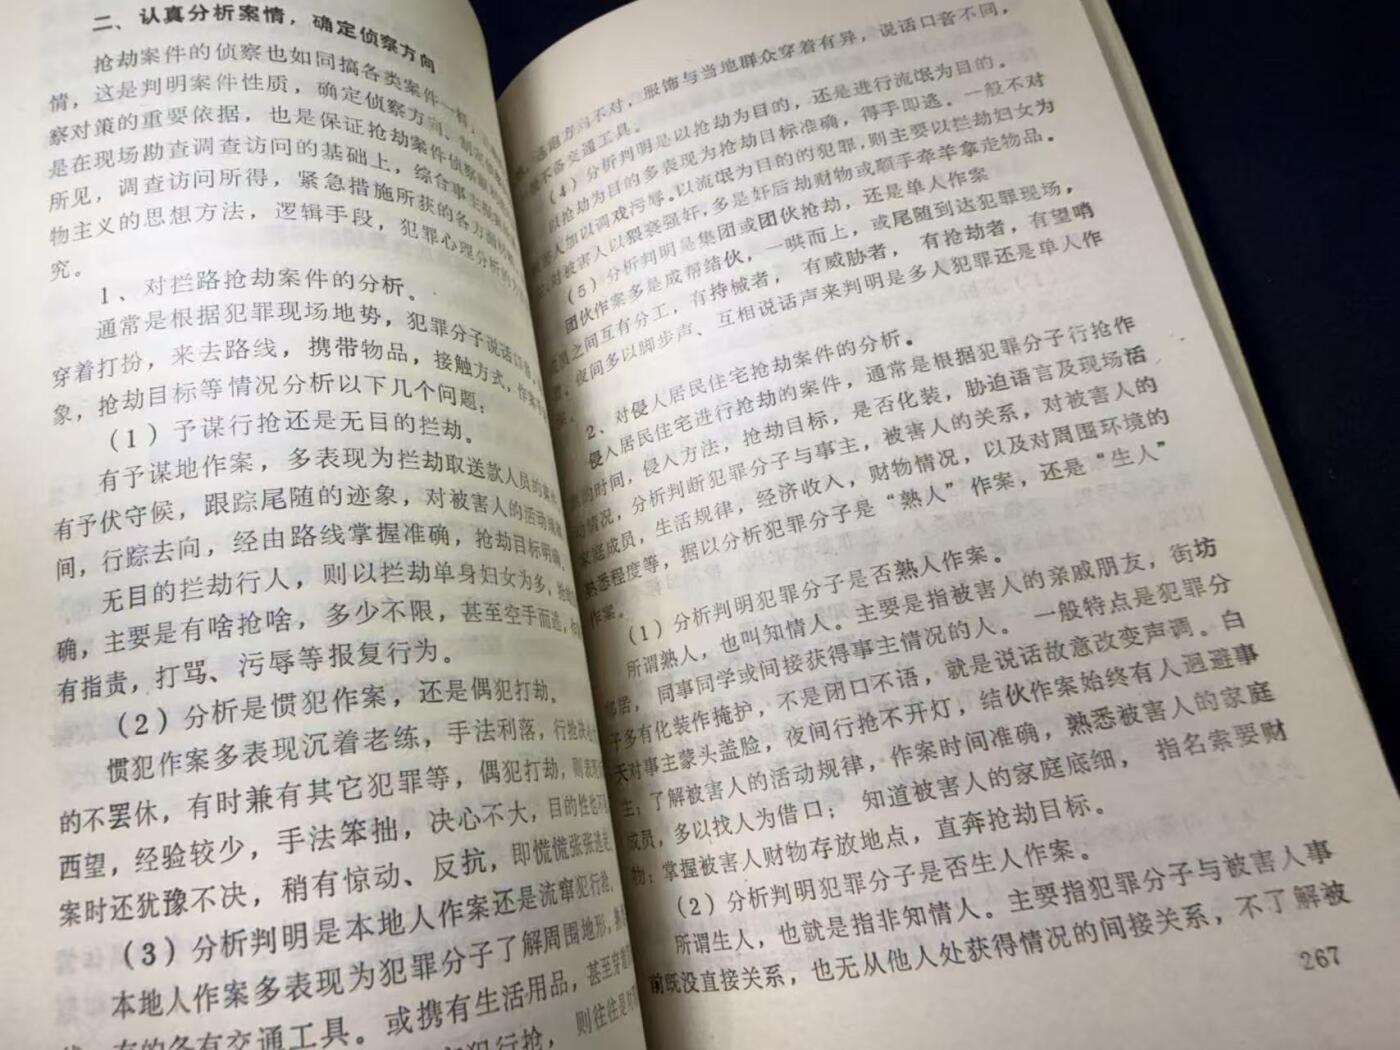 二、认真分析案情，确定侦察方向
抢劫案件的侦察也如同搞各类案件一样，
情，这是判明案件性质，确定侦察方向、制定
察对策的重要依据，也是保证抢劫案件侦察
是在现场勘查调查访问的基础上，综合事主
所见，调查访问所得，紧急措施所获的各方面
物主义的思想方法，逻辑手段，犯罪心理分析的
究。
1、对拦路抢劫案件的分析。
通常是根据犯罪现场地势，犯罪分子说话口音，
穿着打扮，来去路线，携带物品，接触方式，作案
象，抢劫目标等情况分析以下几个问题：
（1）予谋行抢还是无目的拦劫。
有予谋地作案，多表现为拦劫取送款人员的案件
有予伏守候，跟踪尾随的迹象，对被害人的活动
间，行踪去向，经由路线掌握准确，抢劫目标明确，
无目的拦劫行人，则以拦劫单身妇女为多，
确，主要是有啥抢啥，多少不限，甚至空手而逃，
有指责，打骂、污辱等报复行为。
（2）分析是惯犯作案，还是偶犯打劫。
惯犯作案多表现沉着老练，手法利落，行抢决
的不罢休，有时兼有其它犯罪等，偶犯打劫，则表现
西望，经验较少，手法笨拙，决心不大，目的性也不
案时还犹豫不决，稍有惊动、反抗，即慌慌张张逃
（3）分析判明是本地人作案还是流窜犯行抢，
本地人作案多表现为犯罪分子了解周围地形，
有的备有交通工具。或携有生活用品，甚至穿着
犯行抢，则往往是
方向不对，服饰与当地群众穿着有异，说话口音不同，
不备交通工具。
（4）分析判明是以抢劫为目的，还是进行流氓为目的。
以抢劫为目的多表现为抢劫目标准确，得手即逃。一般不对
害人加以调戏污辱。以流氓为目的的犯罪，则主要以拦劫妇女为
对被害人以猥亵强奸，多是奸后劫财物或顺手牵羊拿走物品。
（5）分析判明是集团或团伙抢劫，还是单人作案
团伙作案多是成帮结伙，一哄而上，或尾随到达犯罪现场，
之间互有分工，有持械者，有威胁者，有抢劫者，有望哨
夜间多以脚步声、互相说话声来判明是多人犯罪还是单人作
2、对侵入居民住宅抢劫案件的分析。
侵入居民住宅进行抢劫的案件，通常是根据犯罪分子行抢作
的时间，侵入方法，抢劫目标，是否化装，胁迫语言及现场活
动情况，分析判断犯罪分子与事主，被害人的关系，对被害人的
家庭成员，生活规律，经济收入，财物情况，以及对周围环境的
熟悉程度等，据以分析犯罪分子是“熟人”作案，还是“生人”
作案。
（1）分析判明犯罪分子是否熟人作案。
所谓熟人，也叫知情人。主要是指被害人的亲戚朋友，街坊
邻居，同事同学或间接获得事主情况的人。一般特点是犯罪分
子多有化装作掩护，不是闭口不语，就是说话故意改变声调。白
天对事主蒙头盖脸，夜间行抢不开灯，结伙作案始终有人迥避事
主；了解被害人的活动规律，作案时间准确，熟悉被害人的家庭
成员，多以找人为借口；知道被害人的家庭底细，指名索要财
物；掌握被害人财物存放地点，直奔抢劫目标。
（2）分析判明犯罪分子是否生人作案。
所谓生人，也就是指非知情人。主要指犯罪分子与被害人事
前既没直接关系，也无从他人处获得情况的间接关系，不了解被
267